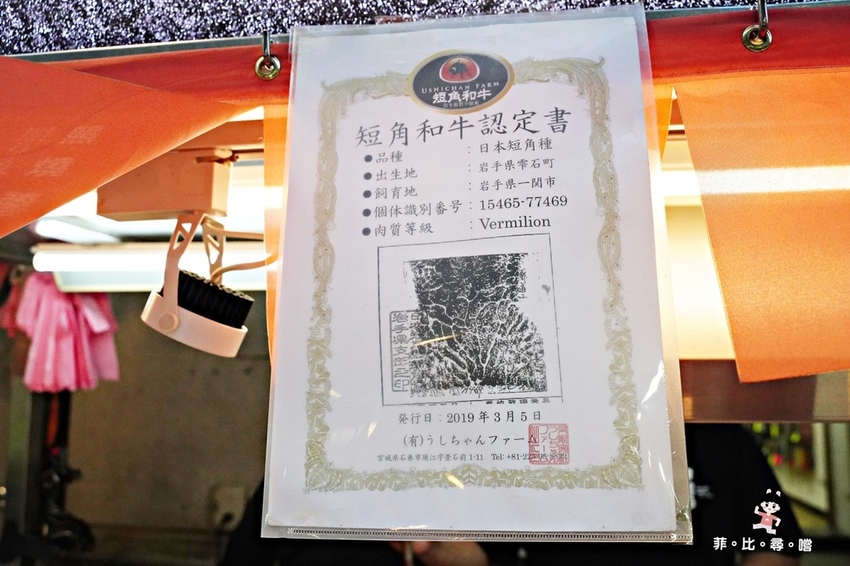 USHICHAN FARM
短角和牛
短角和牛認定書
●品種 : 日本短角種
●出生地 : 岩手県雫石町
●飼育地 : 岩手県一関市
●個体識別番号 : 15465-77469
●肉質等級 : Vermilion
発行日 : 2019年3月5日
(有)うしちゃんファーム
宮城県石巻市須江字畳石前1-11 Tel: +81-225-
菲。比。尋。嚐